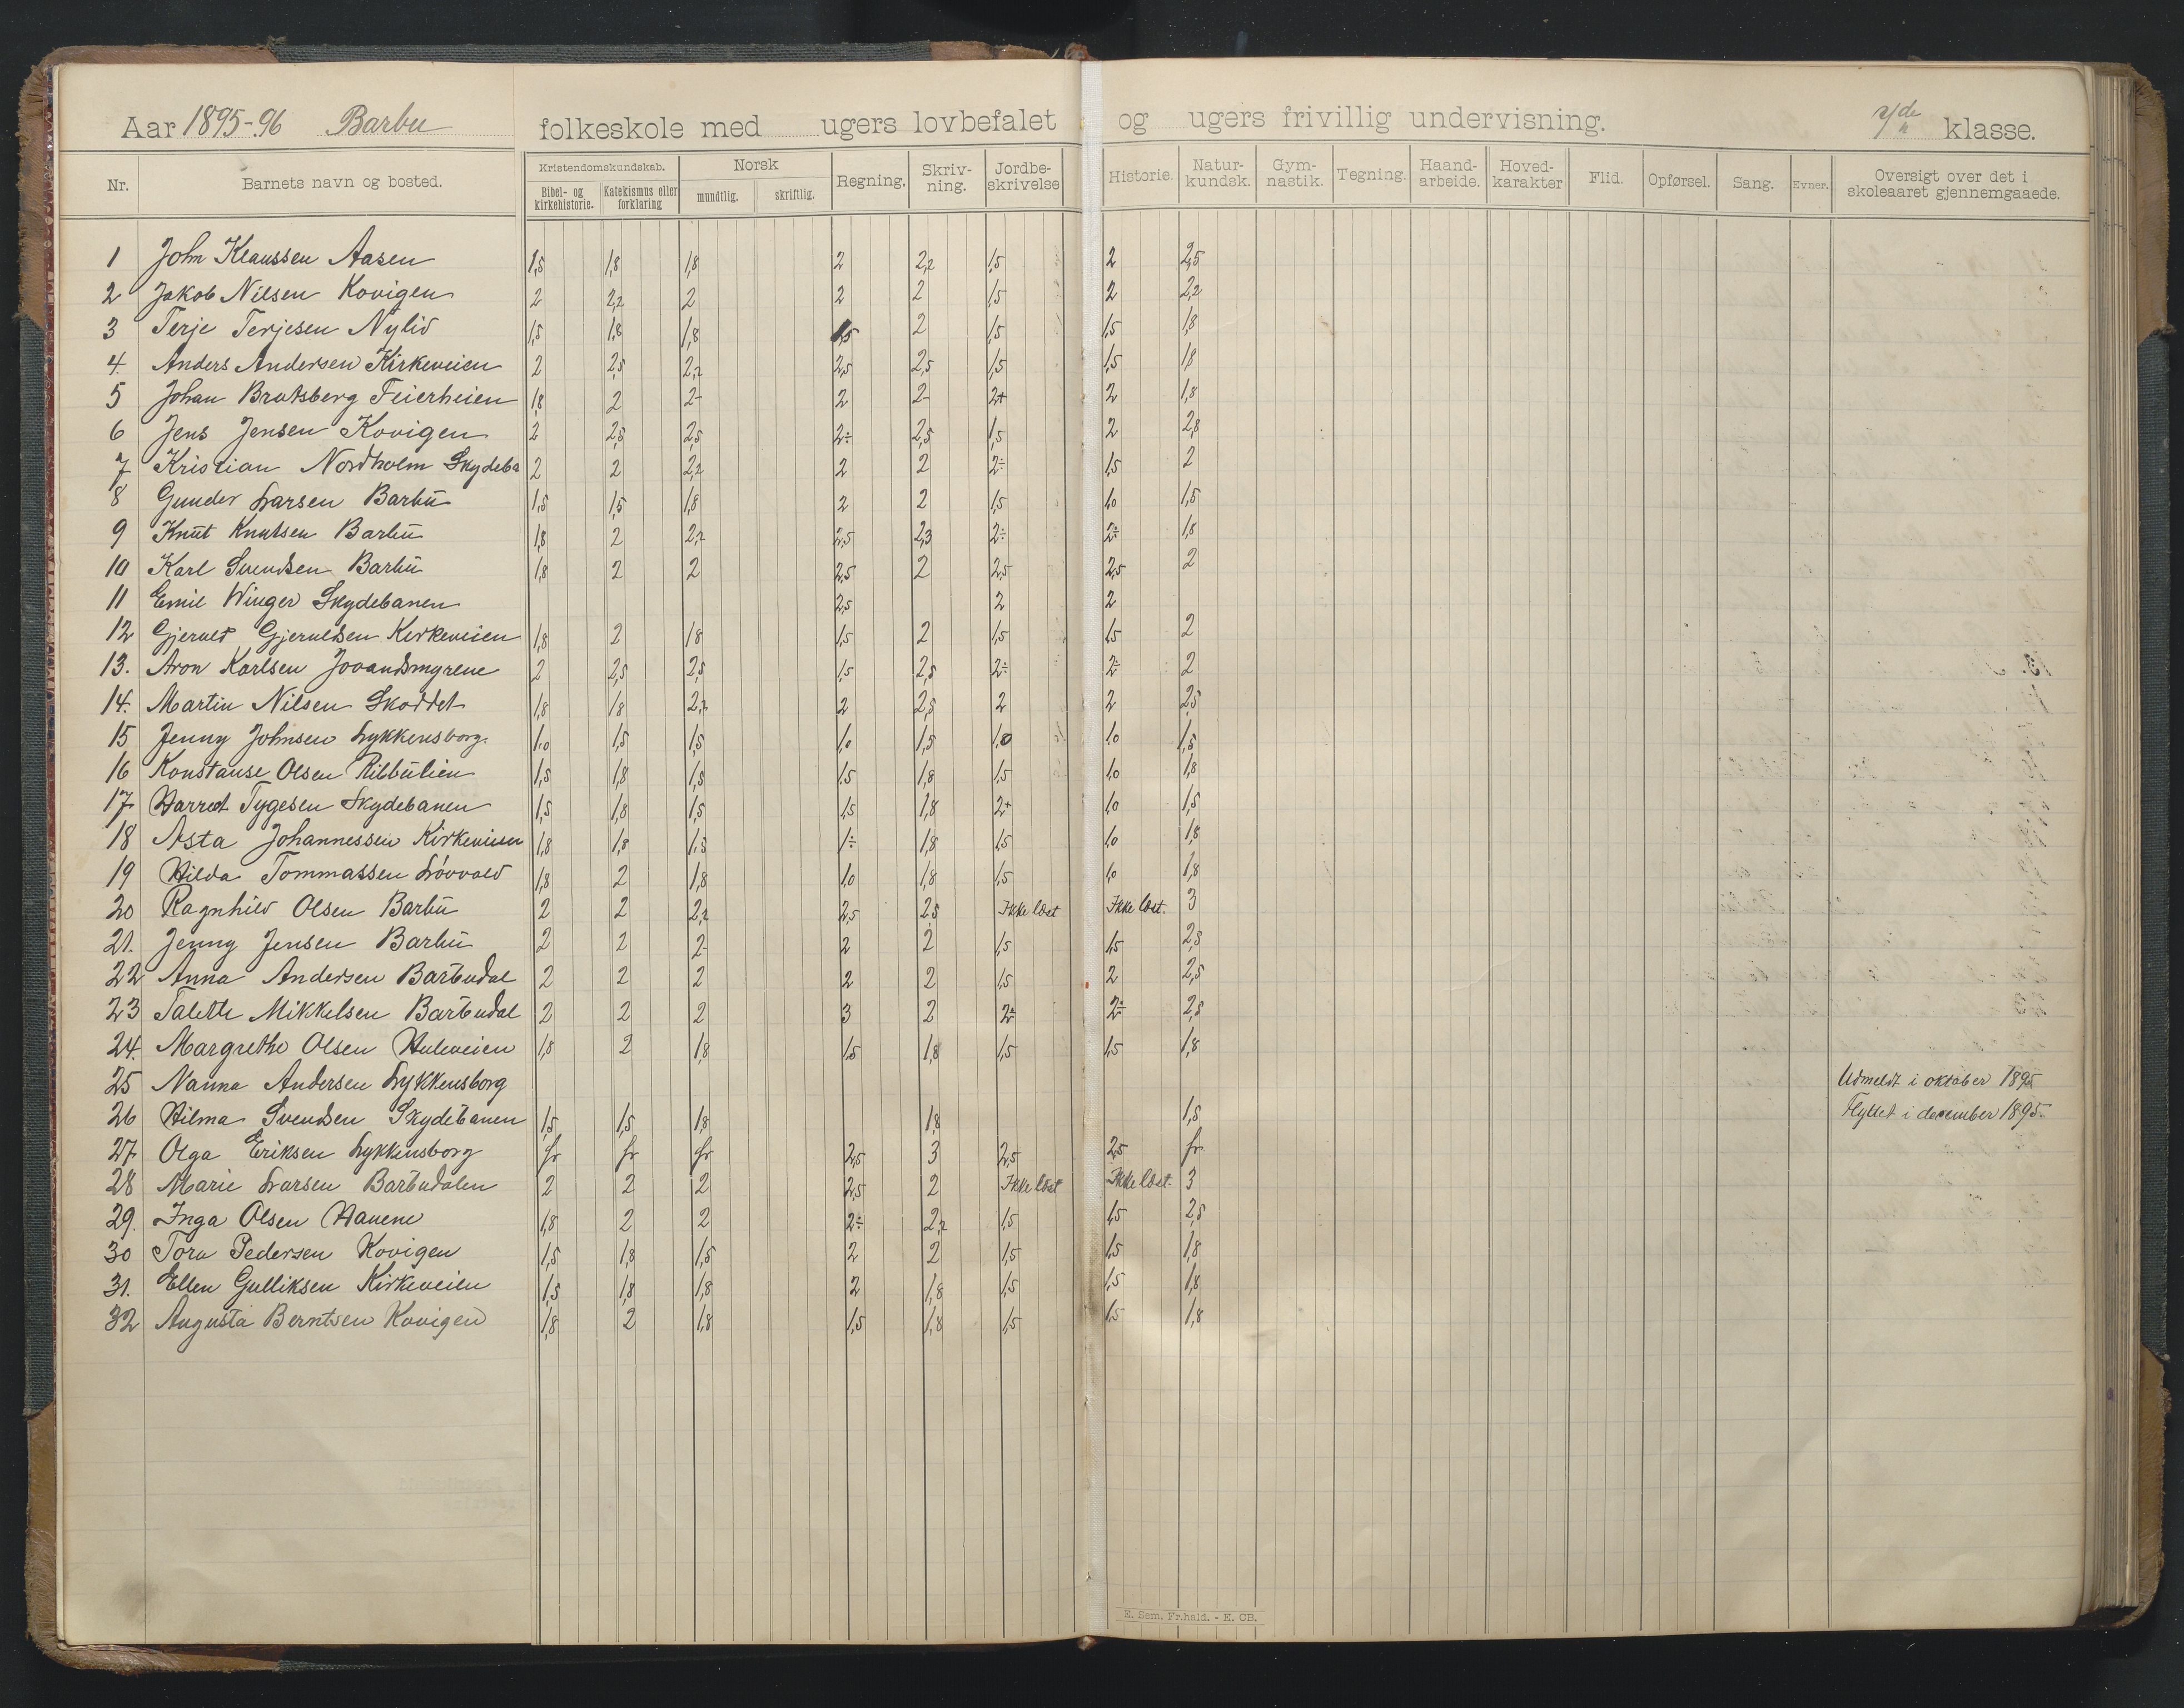 Aar 1895-96 Barbu folkeskole med ugers lovbefalet og ugers frivillig undervisning. klasse.
Nr. Barnets navn og bosted. Kristendomskundskab. Bibel- og kirkehistorie. Katekismus eller forklaring Norsk mundtlig. skriftlig. Regning. Skriv-ning. Jordbe-skrivelse Historie. Natur-kundsk. Gym-nastik. Tegning. Haand-arbeide. Hoved-karakter Flid. Opførsel. Sang. Evner. Oversigt over det i skoleaaret gjennemgaaede.
1 John Klaussen Aasen 1,5 1,8 1,8 2 2,2 1,5 2 2,5
2 Jakob Nilsen Kovigen 2 2,2 2 2 2 1,5 2 2,2
3 Terje Terjesen Nylid 1,5 1,8 1,8 1,5 2 1,5 1,5 1,8
4. Anders Andersen Kirkeveien 2 2,5 2,2 2,5 2,5 1,5 1,5 1,8
5 Johan Bratsberg Feierheien 1,8 2 2- 2 2- 2+ 2 1,8
6 Jens Jensen Kovigen 2 2,5 2,5 2÷ 2,5 1,5 2 2,8
7 Kristian Nordholm Skydeba 2 2 2,2 2 2 2÷ 1,5 2
8 Gunder Larsen Barbu 1,5 1,5 1,8 2 2 1,5 1,0 1,5
9 Knut Knutsen Barbu 1,8 2 2,2 2,5 2,3 2÷ 2÷ 1,8
10 Karl Svendsen Barbu 1,8 2 2 2,5 2 2,5 2,5 2
11 Emil Winger Skydebanen 2,5 2 2
12 Gjerulf Gjeruldsen Kirkeveien 1,8 2 1,8 1,5 2 1,5 1,5 2
13. Aron Karlsen Jovandsmyrene 2 2,5 2,5 1,5 2,5 2÷ 2÷ 2
14. Martin Nilsen Skoddet 1,8 1,8 2,2 2 2,5 2 2 2,5
15 Jenny Johnsen Lykkensborg. 1,0 1,5 1,5 1,0 1,5 1,0 1,0 1,5
16 Konstanse Olsen Ribbulien 1,5 1,8 1,5 1,5 1,8 1,5 1,0 1,8
17 Harriet Tygesen Skydebanen 1,5 1,8 1,5 1,5 1,8 2+ 1,0 1,5
18 Asta Johannessen Kirkeveien 1,8 1,8 1,5 1÷ 1,8 1,5 1,0 1,8
19 Hilda Tommassen Løvvold 1,8 2 1,8 1,0 1,8 1,5 1,0 1,8
20 Ragnhild Olsen Barbu 2 2 2,2 2,5 2,5 Ikke læst Ikke læst. 3
21. Jenny Jensen Barbu 2 2 2- 2 2 1,5 1,5 2,5
22 Anna Andersen Barbudal 2 2 2 2 2 1,5 2 2,5
23 Talette Mikkelsen Barbudal 2 2 2 3 2 2÷ 2÷ 2,5
24. Margrethe Olsen Huleveien 1,8 2 1,8 1,5 1,8 1,5 1,5 1,8
25 Nanna Andersen Lykkensborg Udmeldt i oktober 1895
26 Hilma Svendsen Skydebanen 1,5 1,5 1,8 1,8 1,5 Flyttet i december 1895.
27 Olga Eriksen Lykkensborg fr fr fr 2,5 3 2,5 2,5 fr
28 Marie Larsen Barbudalen 2 2 2 2,5 2 Ikke læst Ikke læst. 3
29. Inga Olsen Havene 1,8 2 2 2÷ 2,2 1,5 1,5 2,5
30 Tora Pedersen Kovigen 1,5 1,8 1,5 2 2 1,5 1,5 1,8
31. Ellen Gulliksen Kirkeveien 1,5 1,8 1,8 2 1,8 1,5 1,5 1,8
32 Augusta Berntsen Kovigen 1,8 2 1,8 1,5 1,8 1,5 1,5 1,8
E. Sem, Fr.hald. - E. CB.